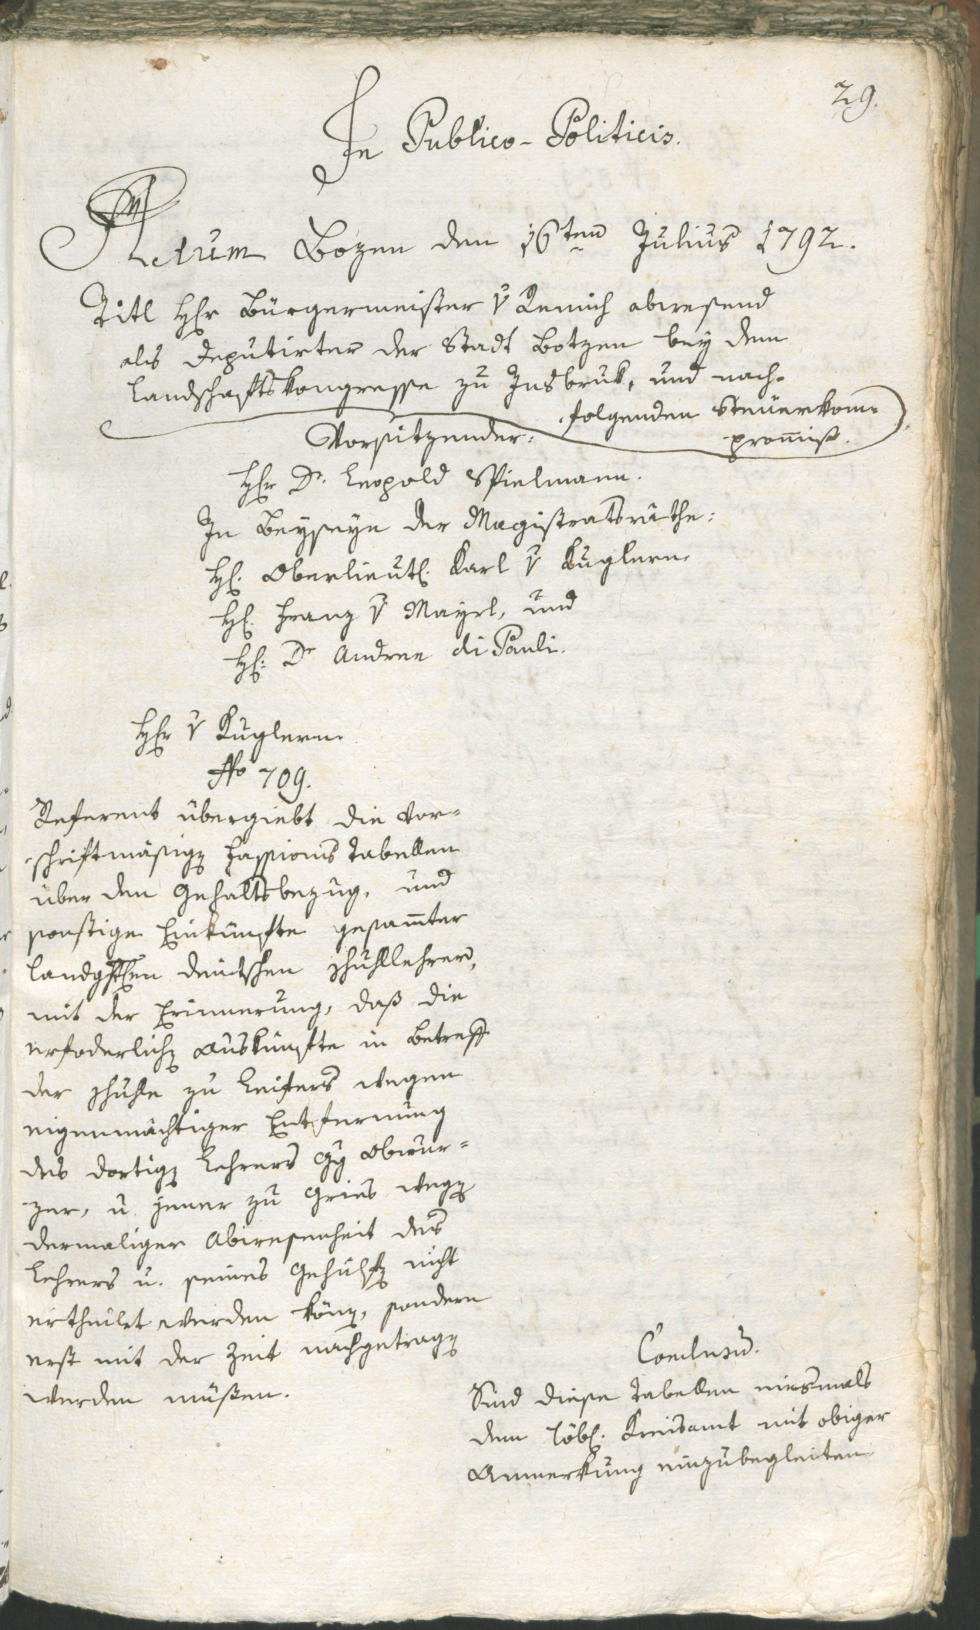 29.
In Publico-Politicis.
Actum Bozen den 16ten Julius 1792.
Titl Hhr Bürgermeister v Remich abwesend
als Deputirter der Stadt Botzen bey dem
landschaftskongresse zu Insbruk, und nach-
folgenden Steüerkom-
promiss.
Vorsitzender:
Hhr Dr. Leopold Spielmann.
In Beyseyn der Magistratsräthe:
H. Oberlieut. Karl v Kuglern
H. Franz v Mayrl, und
H: Dr Andree di Pauli.
Hhr v Kuglern
No 709.
Referent übergiebt die vor-
schriftmäsig Fassions Tabellen
über den Gehaltsbezug, und
sonstige Einkünfte gesamter
landghten deütschen Schullehrer,
mit der Erinnerung, daß die
erfoderlich Auskünfte in Betreff
der Schule zu Leifers wegen
eigenmächtiger Entfernung
des dortig Lehrers Abwur-
zer, u. jener zu Gries weg
dermaliger Abwesenheit des
Lehrers u. seines Gehülf nicht
ertheilet werden kön, sondern
erst mit der Zeit nachgetrag
werden müßen.
Conclusu.
Sind diese Tabellen einsmals
dem löbl. Kreisamt mit obiger
Anmerkung einzubegleiten